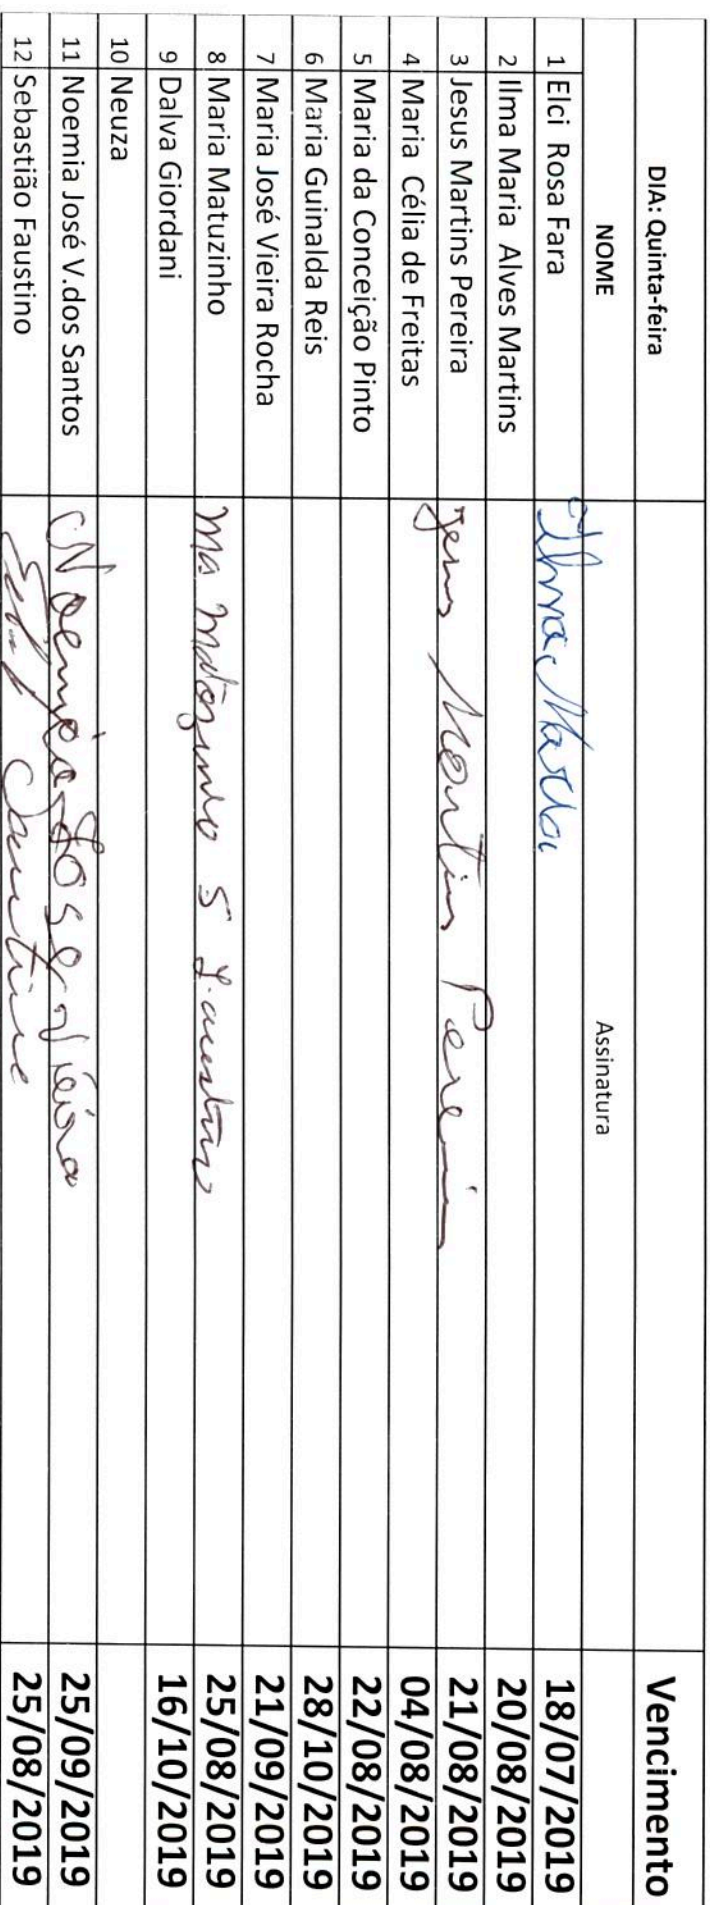 DIA: Quinta-feira Vencimento
NOME Assinatura
1 Elci Rosa Fara 18/07/2019
2 Ilma Maria Alves Martins 20/08/2019
3 Jesus Martins Pereira Jesus Martins Pereira 21/08/2019
4 Maria Célia de Freitas 04/08/2019
5 Maria da Conceição Pinto 22/08/2019
6 Maria Guinalda Reis 28/10/2019
7 Maria José Vieira Rocha 21/09/2019
8 Maria Matuzinho Ma Matozinho S 25/08/2019
9 Dalva Giordani 16/10/2019
10 Neuza
11 Noemia José V.dos Santos Noemia José Vieira 25/09/2019
12 Sebastião Faustino 25/08/2019